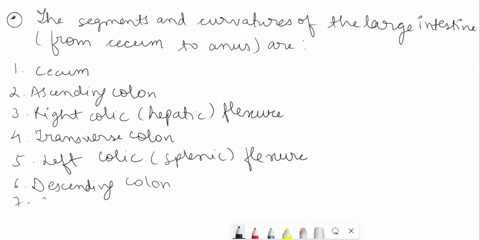 The segments and curvatures of the large intestine
(from cecum to anus) are:
1. Cecum
2. Ascending colon
3. Right colic (hepatic) flexure
4. Transverse colon
5. Left colic (splenic) flexure
6. Descending colon
7.